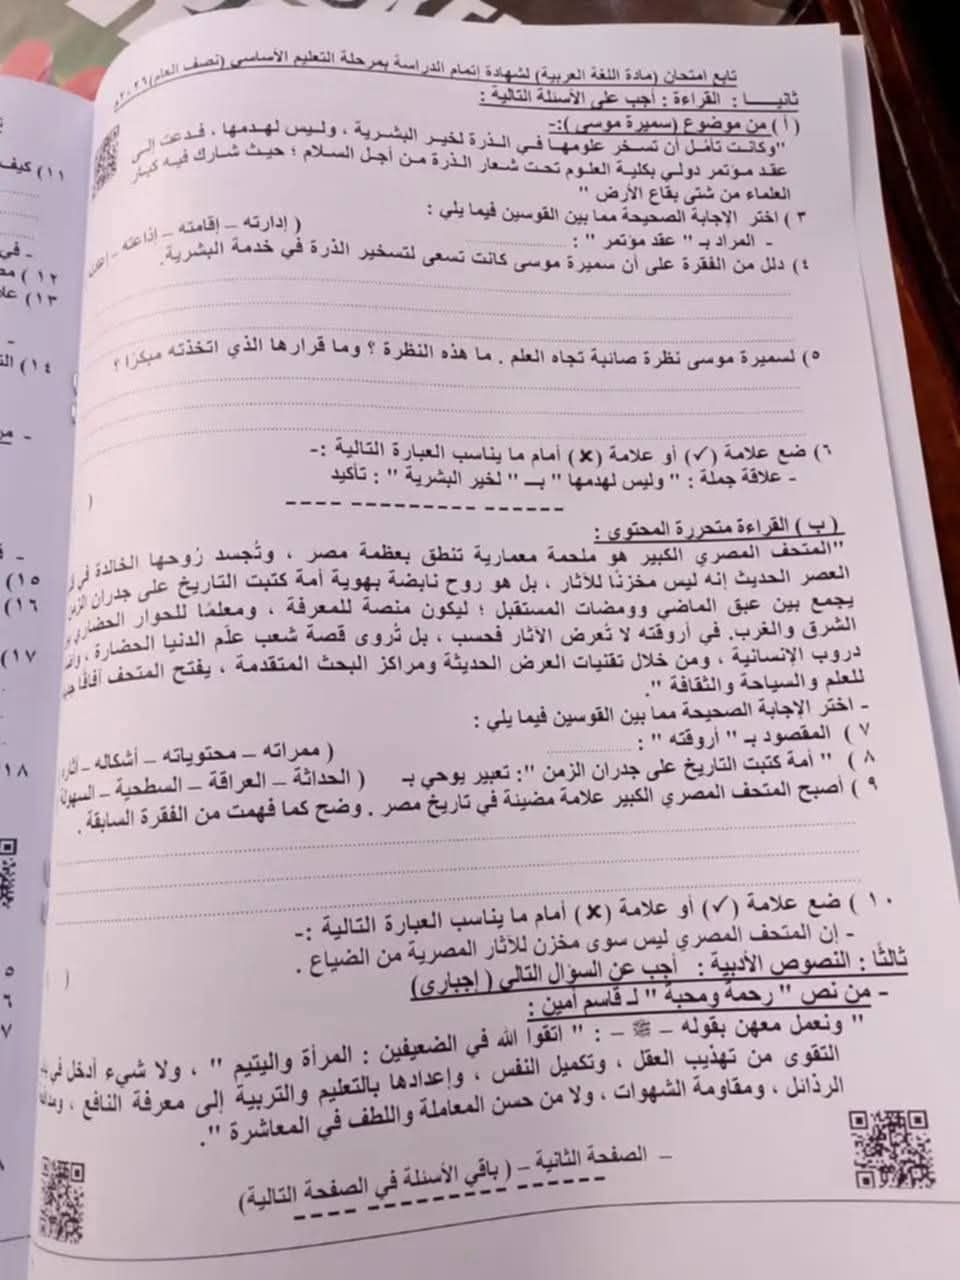 تابع امتحان (مادة اللغة العربية) لشهادة إتمام الدراسة بمرحلة التعليم الأساسي (نصف العام) ٢٠٢٦م
ثانيـــا : القراءة : أجب على الأسئلة التالية :
( أ ) من موضوع (سميرة موسى ):-
"وكانت تأمل أن تسخر علومها في الذرة لخير البشرية ، وليس لهدمها ، فدعت إلى
عقد مؤتمر دولي بكلية العلوم تحت شعار الذرة من أجل السلام ؛ حيث شارك فيه كبار
العلماء من شتى بقاع الأرض "
٣ ) اختر الإجابة الصحيحة مما بين القوسين فيما يلي :
- المراد بـ " عقد مؤتمر " : ............ ( إدارته – إقامته – إذاعته –
٤) دلل من الفقرة على أن سميرة موسى كانت تسعى لتسخير الذرة في خدمة البشرية.
٥) لسميرة موسى نظرة صائبة تجاه العلم . ما هذه النظرة ؟ وما قرارها الذي اتخذته مبكرًا ؟
٦) ضع علامة (✓) أو علامة (✗) أمام ما يناسب العبارة التالية :-
- علاقة جملة : " وليس لهدمها " بـــ " لخير البشرية " : تأكيد (
( ب ) القراءة متحررة المحتوى :
"المتحف المصري الكبير هو ملحمة معمارية تنطق بعظمة مصر ، وتُجسد رُوحها الخالدة في
العصر الحديث إنه ليس مخزنًا للآثار ، بل هو روح نابضة بهوية أمة كتبت التاريخ على جدران الزمن
يجمع بين عبق الماضي وومضات المستقبل ؛ ليكون منصة للمعرفة ، ومعلمًا للحوار الحضاري
الشرق والغرب. في أروقته لا تُعرض الآثار فحسب ، بل تُروى قصة شعب علّم الدنيا الحضارة ،
دروب الإنسانية ، ومن خلال تقنيات العرض الحديثة ومراكز البحث المتقدمة ، يفتح المتحف آفاقًا
للعلم والسياحة والثقافة ".
- اختر الإجابة الصحيحة مما بين القوسين فيما يلي :
٧ ) المقصود بـ " أروقته " : ............ ( ممراته – محتوياته – أشكاله –
٨ ) " أمة كتبت التاريخ على جدران الزمن ": تعبير يوحي بـ ( الحداثة – العراقة – السطحية – السهولة
٩ ) أصبح المتحف المصري الكبير علامة مضيئة في تاريخ مصر . وضح كما فهمت من الفقرة السابقة .
١٠ ) ضع علامة (✓) أو علامة (✗) أمام ما يناسب العبارة التالية :-
- إن المتحف المصري ليس سوى مخزن للآثار المصرية من الضياع . ( )
ثالثًا : النصوص الأدبية : أجب عن السؤال التالي ( إجبارى)
- من نص " رحمة ومحبة " لـ قاسم أمين :
" ونعمل معهن بقوله – ﷺ – : " اتقوا الله في الضعيفين : المرأة واليتيم " ، ولا شيء أدخل في
التقوى من تهذيب العقل ، وتكميل النفس ، وإعدادها بالتعليم والتربية إلى معرفة النافع ،
الرذائل ، ومقاومة الشهوات ، ولا من حسن المعاملة واللطف في المعاشرة ".
- الصفحة الثانية – ( باقي الأسئلة في الصفحة التالية)
١١) كيف
- في
١٢ )
١٣ )
١٤ )
١٥)
١٦)
١٧)
١٨